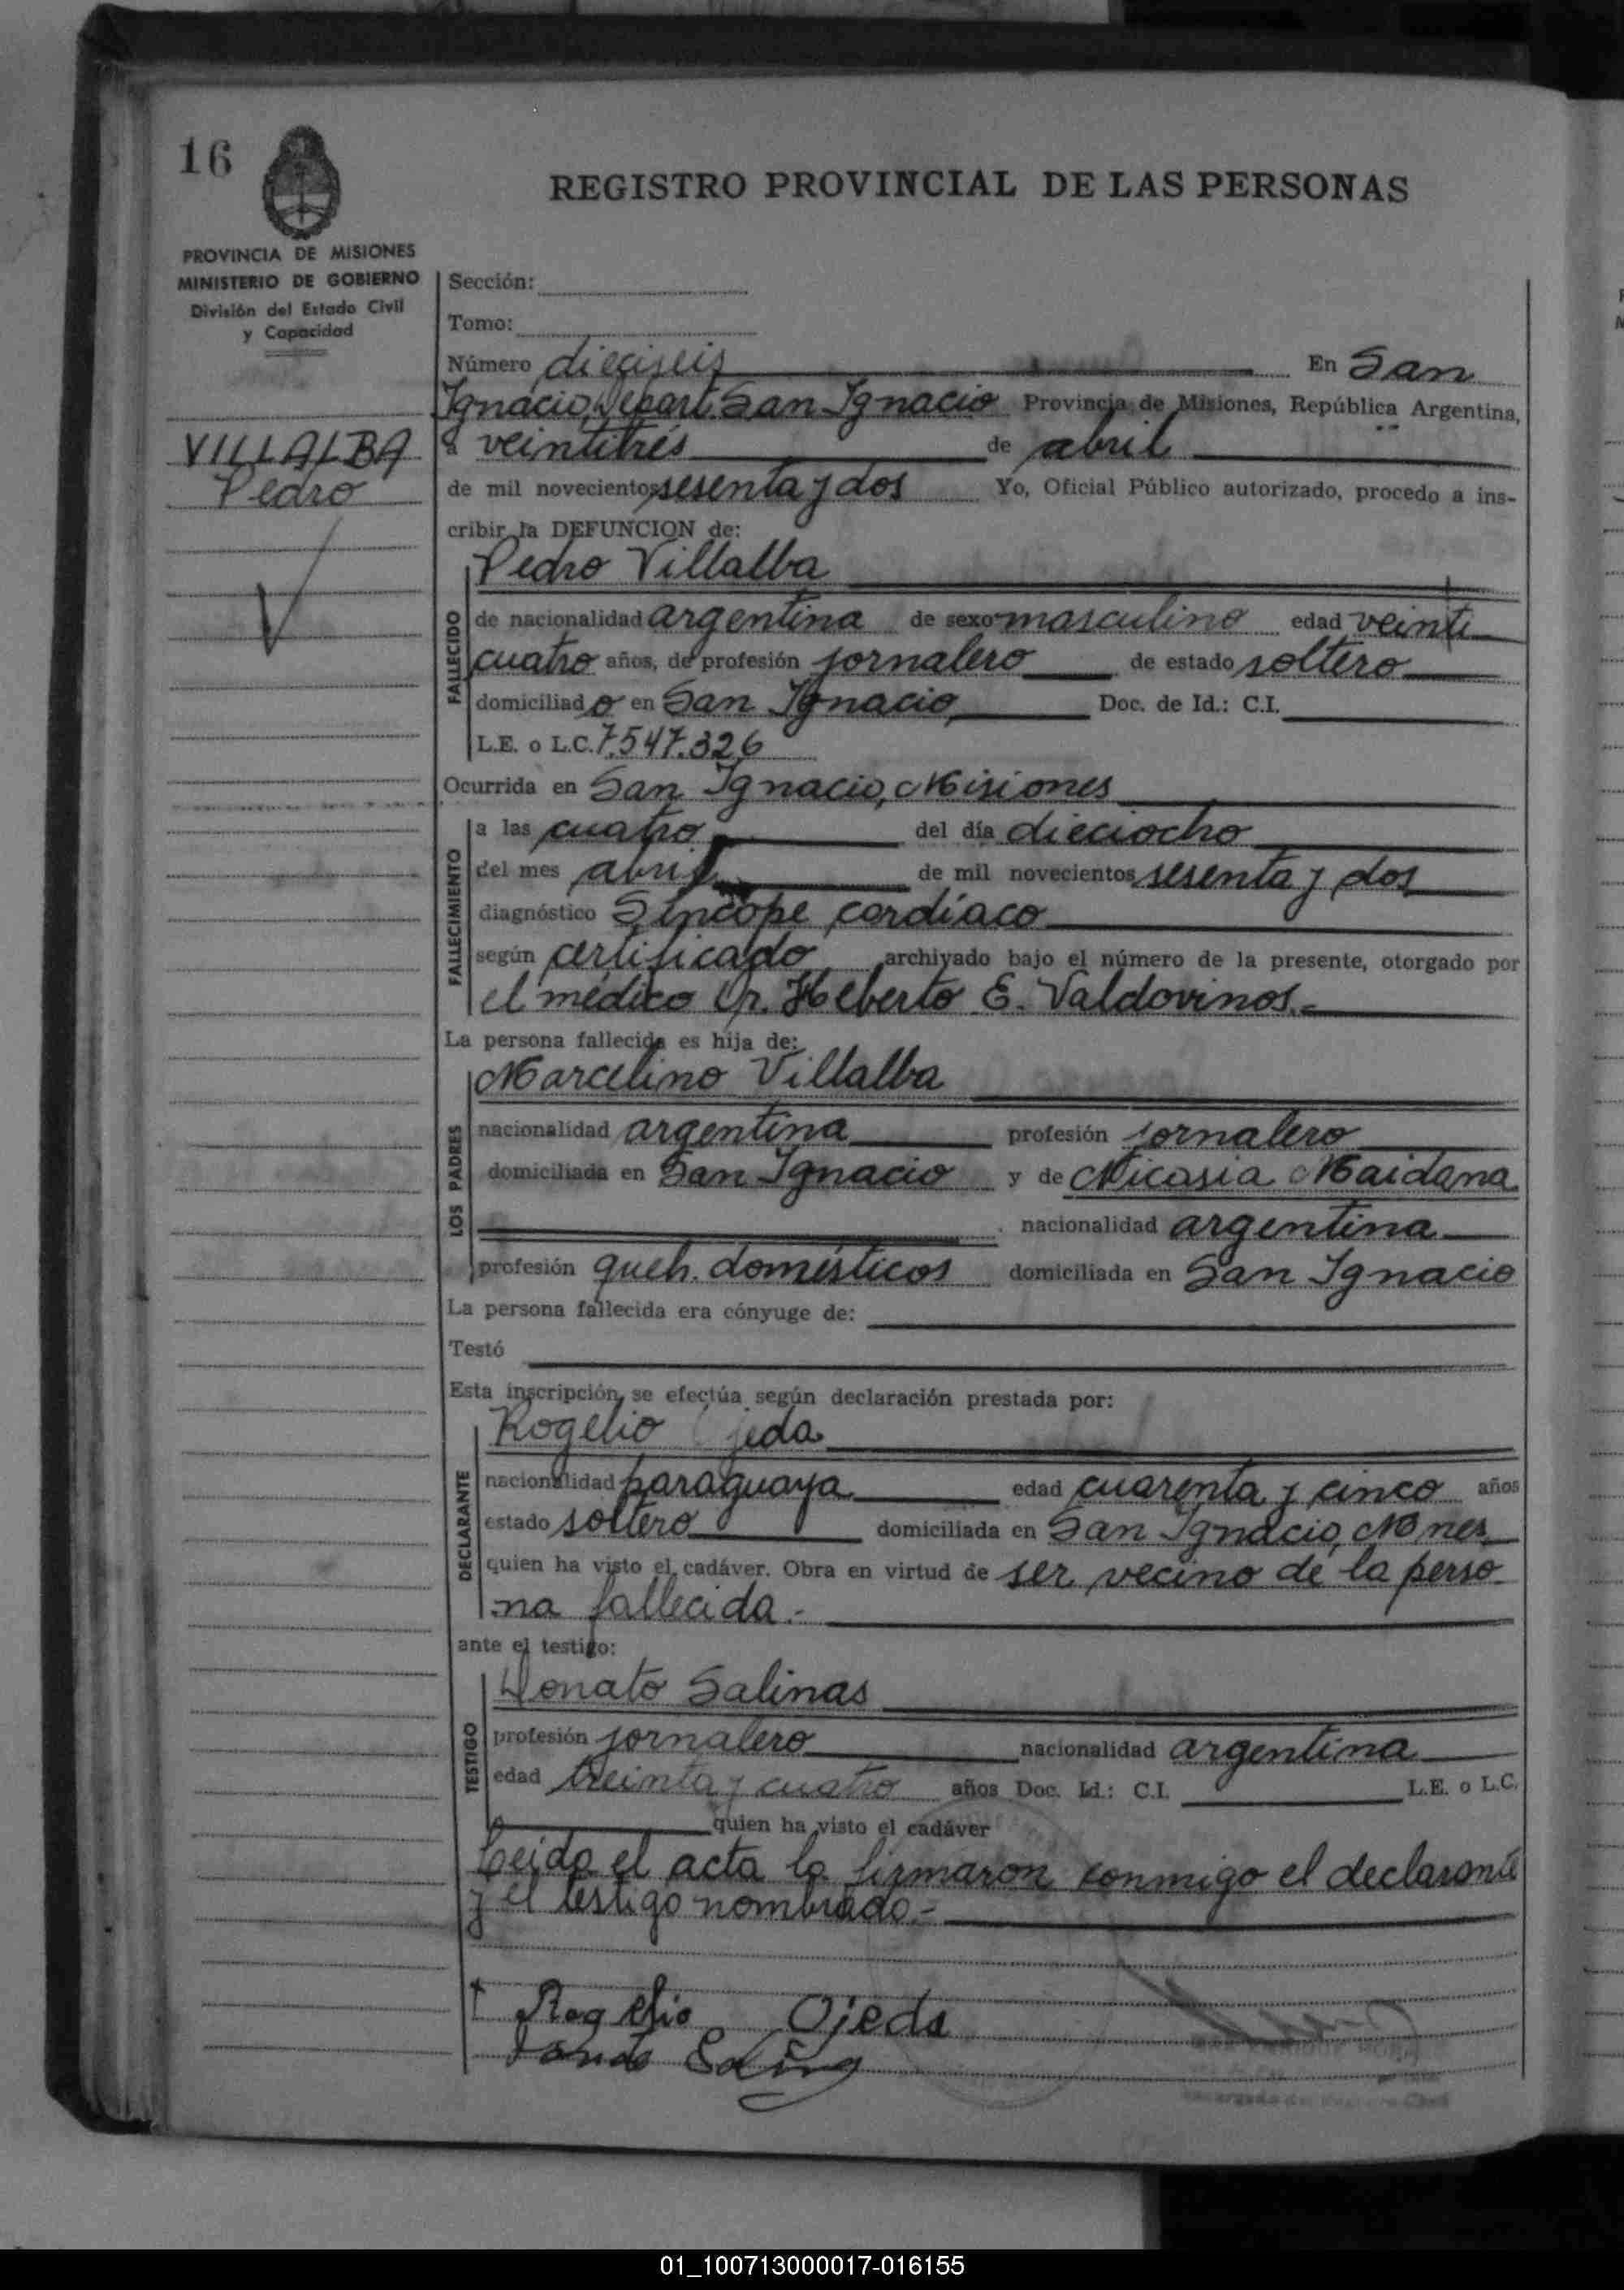 16
REGISTRO PROVINCIAL DE LAS PERSONAS
PROVINCIA DE MISIONES
MINISTERIO DE GOBIERNO
División del Estado Civil
y Capacidad
VILLALBA
Pedro
Sección:
Tomo:
Número dieciseis En San
Ignacio, Depart. San Ignacio Provincia de Misiones, República Argentina,
a veintitrés de abril
de mil novecientos sesenta y dos Yo, Oficial Público autorizado, procedo a ins-
cribir la DEFUNCION de:
FALLECIDO
Pedro Villalba
de nacionalidad argentina de sexo masculino edad veinti
cuatro años, de profesión jornalero de estado soltero
domiciliado en San Ignacio Doc. de Id.: C.I.
L.E. o L.C. 7.547.326
Ocurrida en San Ignacio, Misiones
FALLECIMIENTO
a las cuatro del día dieciocho
del mes abril de mil novecientos sesenta y dos
diagnóstico Síncope cardíaco
según certificado archivado bajo el número de la presente, otorgado por
el médico Dr. Heberto E. Valdovinos.-
La persona fallecida es hija de:
LOS PADRES
Marcelino Villalba
nacionalidad argentina profesión jornalero
domiciliada en San Ignacio y de Nicasia Maidana
nacionalidad argentina
profesión queh. domésticos domiciliada en San Ignacio
La persona fallecida era cónyuge de:
Testó
Esta inscripción se efectúa según declaración prestada por:
DECLARANTE
Rogelio Ojeda
nacionalidad paraguaya edad cuarenta y cinco años
estado soltero domiciliada en San Ignacio, Mnes.
quien ha visto el cadáver. Obra en virtud de ser vecino de la perso
na fallecida.-
ante el testigo:
TESTIGO
Donato Salinas
profesión jornalero nacionalidad argentina
edad treinta y cuatro años Doc. Id.: C.I. L.E. o L.C.
quien ha visto el cadáver
Leida el acta la firmaron conmigo el declarante
y el testigo nombrado.-
Rogelio Ojeda
Donato Salinas
Encargado del Registro Civil
01_100713000017-016155